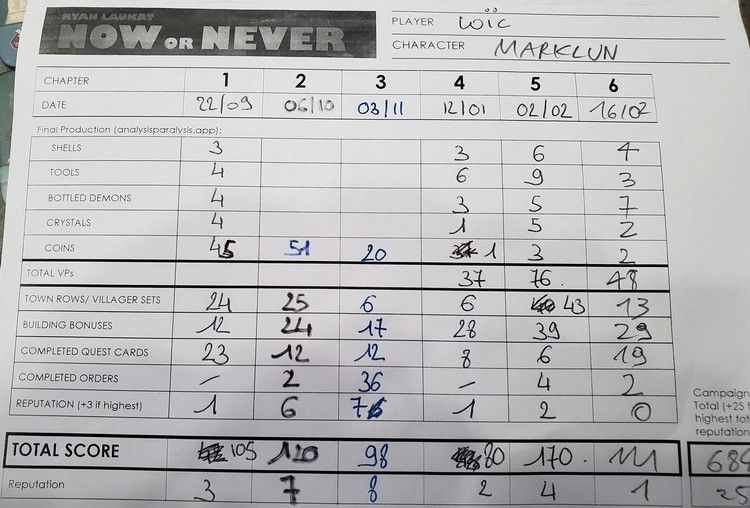 RYAN LAUKAT
NOW OR NEVER
PLAYER Loïc
CHARACTER MARKLUN
CHAPTER 1 2 3 4 5 6
DATE 22/09 06/10 03/11 12/01 02/02 16/02
Final Production (analysisparalysis.app):
SHELLS 3 3 6 4
TOOLS 4 6 9 3
BOTTLED DEMONS 4 3 5 7
CRYSTALS 4 1 5 2
COINS 45 51 20 1 3 2
TOTAL VPs 37 76. 48
TOWN ROWS/ VILLAGER SETS 24 25 6 6 43 13
BUILDING BONUSES 12 24 17 28 39 29
COMPLETED QUEST CARDS 23 12 12 8 6 19
COMPLETED ORDERS – 2 36 – 4 2
REPUTATION (+3 if highest) 1 6 7 1 2 0
Campaign
Total (+25
highest tot
reputation
TOTAL SCORE 105 120 98 80 170. 111 684
Reputation 3 7 8 2 4 1 25